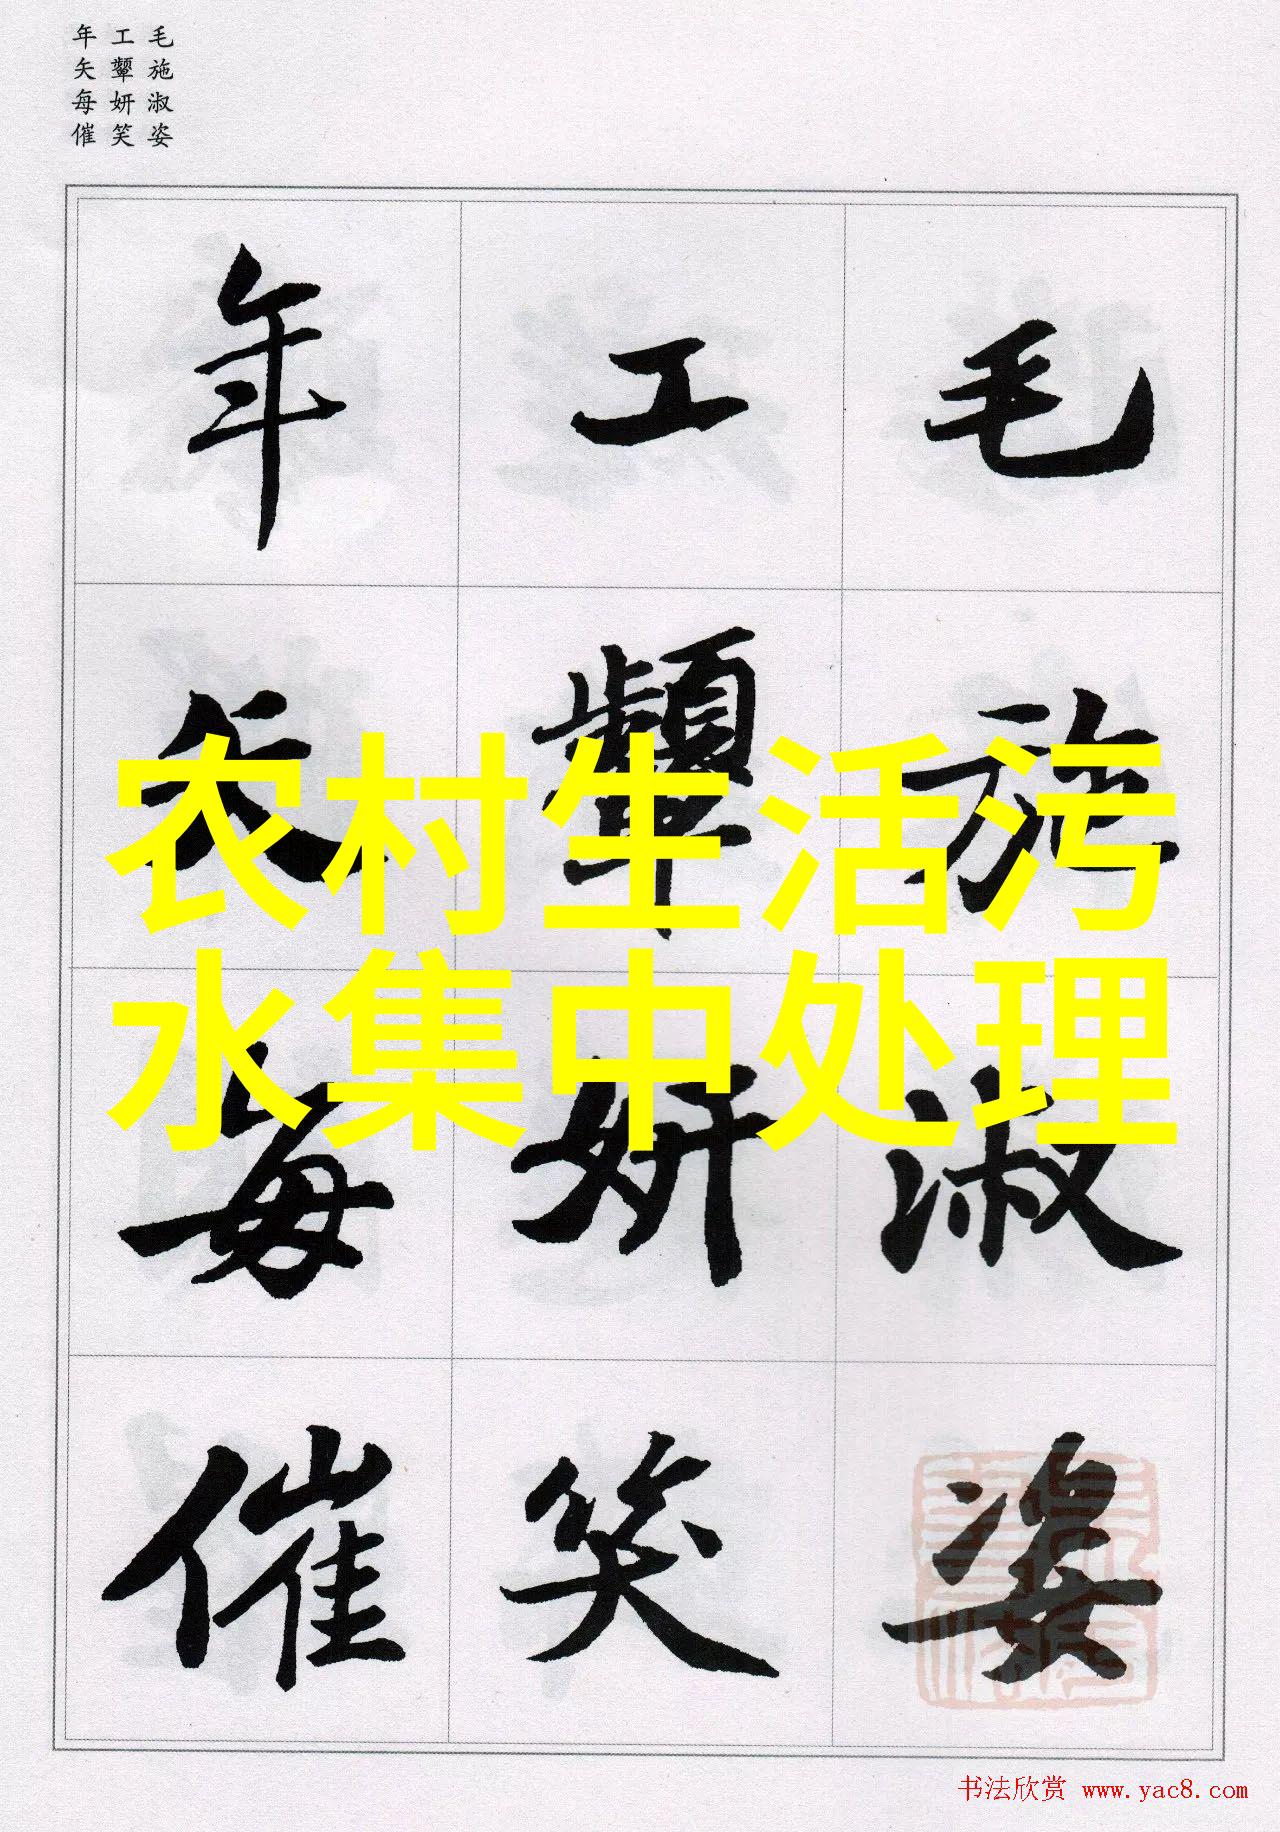 毛施淑姿
工顰妍笑
年矢每催
毛施淑姿
工顰妍笑
年矢每催
农村生活污
水集中处理
书法欣赏 www.yac8.com